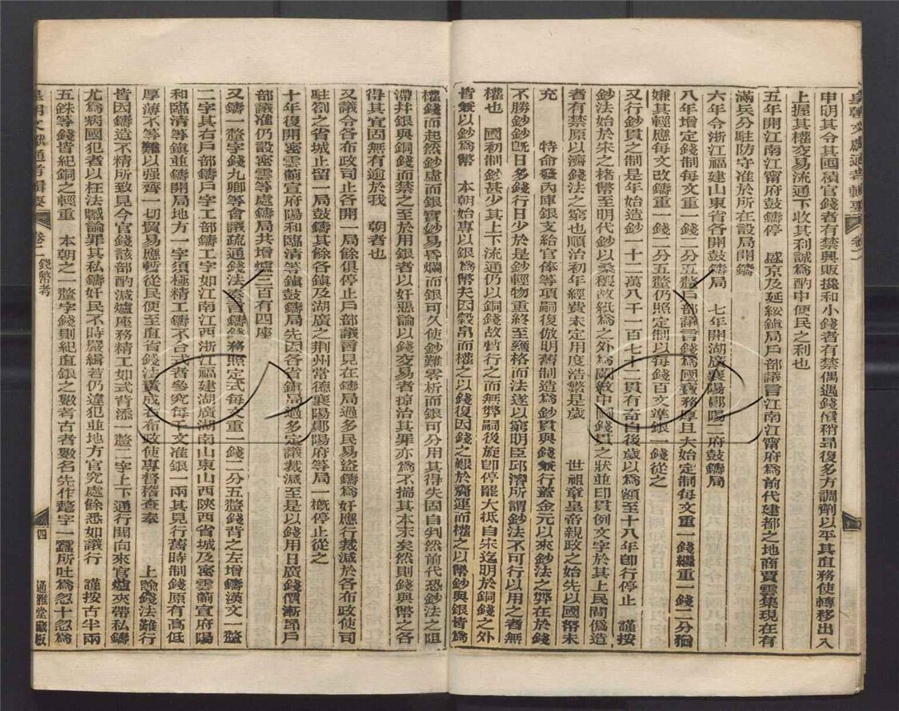 皇朝文獻通考輯要 卷二
申明其令其囤積官錢者有禁興販攙和小錢者有禁偶遇錢價稍昂復多方調劑以平其直務使轉移出入
上握其權交易流通下收其利誠為酌中便民之利也
五年開江南江甯府鼓鑄停 盛京及延綏鎮局戶部議言江南江甯府為前代建都之地商賈雲集現在有
滿兵分駐防守准於所在設局開鑄
六年令浙江福建山東省各開鼓鑄局 七年開湖廣襄陽鄖陽二府鼓鑄局
八年增定錢制每文重一錢二分五釐戶部議言錢為國寶務厚且大始定制每文重一錢繼重一錢二分猶
嫌其輕應每文改鑄重一錢二分五釐仍照定制以每錢百文準銀一錢從之
又行鈔貫之制是年始造鈔一十二萬八千一百七十二貫有奇自後歲以為額至十八年卽行停止 謹按
鈔法始於宋之楮幣至明代鈔以桑穰故紙為之外為闌數中圖錢貫之狀並印貫例文字於其上民間僞造
者有禁原以濟錢法之窮也順治初年經費未定用度浩繁是歲 世祖章皇帝親政之始先以國帑未
充 特命發內庫銀支給官俸等項嗣復倣明舊制造為鈔貫與錢兼行蓋金元以來鈔法之弊在於錢
不勝鈔鈔旣日多錢行日少於是鈔輕物重終至壅格而法遂以窮明臣邱濬所謂鈔法不可行以用之者無
權也 國初制鈔甚少其上下流通仍以銅錢故暫行之而無弊嗣後旋卽停罷大抵自宋迄明於銅錢之外
皆兼以鈔為幣 本朝始專以銀為幣夫因穀帛而權之以錢復因錢之艱於齎運而權之以幣鈔與銀皆為
權錢而起然鈔虛而銀實鈔易昏爛而銀可久使鈔難零析而銀可分用其得失固自判然前代恐鈔法之阻
滯幷銀與銅錢而禁之至於用銀者以奸惡論以錢交易者掠治其罪亦為不揣其本末矣然則錢與幣之各
得其宜固無有逾於我 朝者也
又議令各布政司止各開一局餘俱停止戶部議言見在鑄局過多民易盜鑄為奸應行裁減於各布政使司
駐劄之省城止留一局鼓鑄其餘各鎮及湖廣之荆州常德襄陽鄖陽府等局一概停止從之
十年復開密雲薊宣府陽和臨清等鎮鼓鑄局先因各省鎮局過多定議裁減至是以錢用日廣錢價漸昂戶
部議准仍設密雲等處鑄局共增爐三百有四座
又鑄一釐字錢九卿等會議疏通錢法奏言鑄務照定式每文重一錢二分五釐錢背之左增鑄漢文一釐
二字其右戶部鑄戶字工部鑄工字如江南江西浙江福建湖廣湖南山東山西陝西省城及密雲薊宣府陽
和臨清等鎮並鑄開局地方一字須極精工鑄不合式者參究每千文准銀一兩其見行舊時制錢原有高低
厚薄不等難以強齊一切貿易應暫從民便至直省錢法責成右布政使專督稽查奏 上諭錢法難行
皆因鑄造不精所致見今官錢該部酌減爐座務精工如式背添一釐二字上下通行闗向來官爐夾帶私鑄
尤為病國犯者以枉法贓論罪其私鑄奸民不時嚴緝若仍違犯並地方官究處餘悉如議行 謹按古半兩
五銖等錢皆紀銅之輕重 本朝之一釐字錢則紀直銀之數考古者數名先作氂字一蠶所吐為忽十忽為
皇朝文獻通考輯要 卷二 錢幣考 四 通雅堂藏板